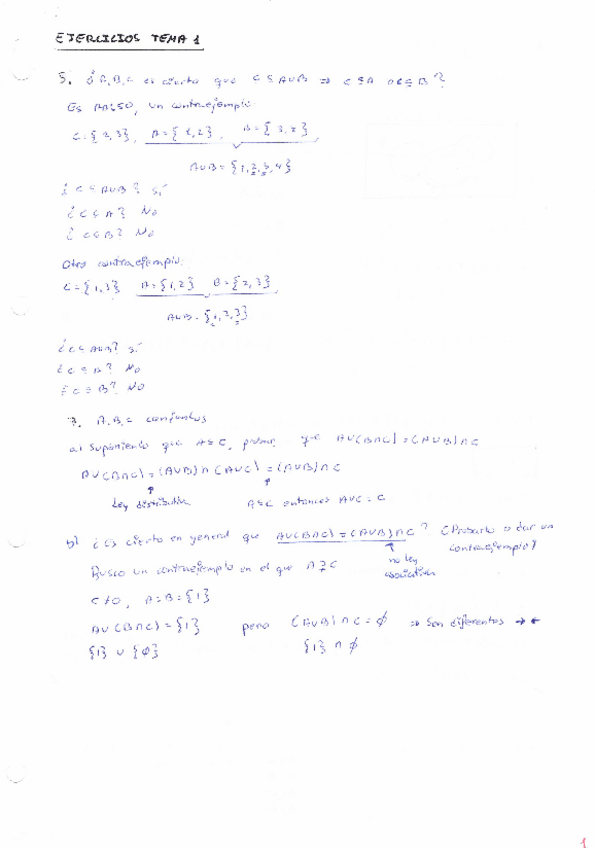 EJERCICIOS TEMA 1
5. ¿ A, B, C es cierto que C ⊆ A∪B ⇒ C ⊆ A o C ⊆ B?
Es FALSO, un contraejemplo:
C = {2,3}, A = {1,2}, B = {3,4}
A∪B = {1,2,3,4}
¿C ⊆ A∪B? Sí
¿C ⊆ A? No
¿C ⊆ B? No
Otro contraejemplo:
C = {1,3} A = {1,2} B = {2,3}
A∪B = {1,2,3}
¿C ⊆ A∪B? Sí
¿C ⊆ A? No
¿C ⊆ B? No
7. A, B, C conjuntos
a) Suponiendo que A ⊆ C, probar que A∪(B∩C) = (A∪B)∩C
A∪(B∩C) = (A∪B)∩(A∪C) = (A∪B)∩C
Ley distributiva A ⊆ C entonces A∪C = C
b) ¿Es cierto en general que A∪(B∩C) = (A∪B)∩C? (Probarlo o dar un contraejemplo)
no ley asociativa
Busco un contraejemplo en el que A ⊈ C
A = B = {1}
A∪(B∩C) = {1} pero (A∪B)∩C = ∅ ⇒ Son diferentes →←
{1} ∪ {∅} {1} ∩ ∅
1